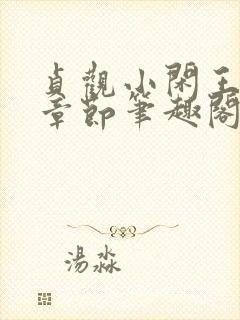 貞觀小閑王
章節筆趣閣
湯淼